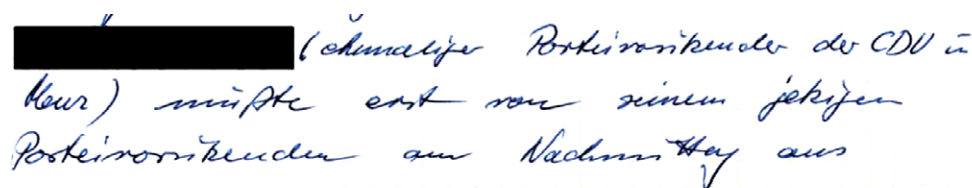 (ehemaliger Parteivorsitzender der CDU in
) mußte erst von seinem jetzigen
Parteivorsitzenden am Nachmittag aus